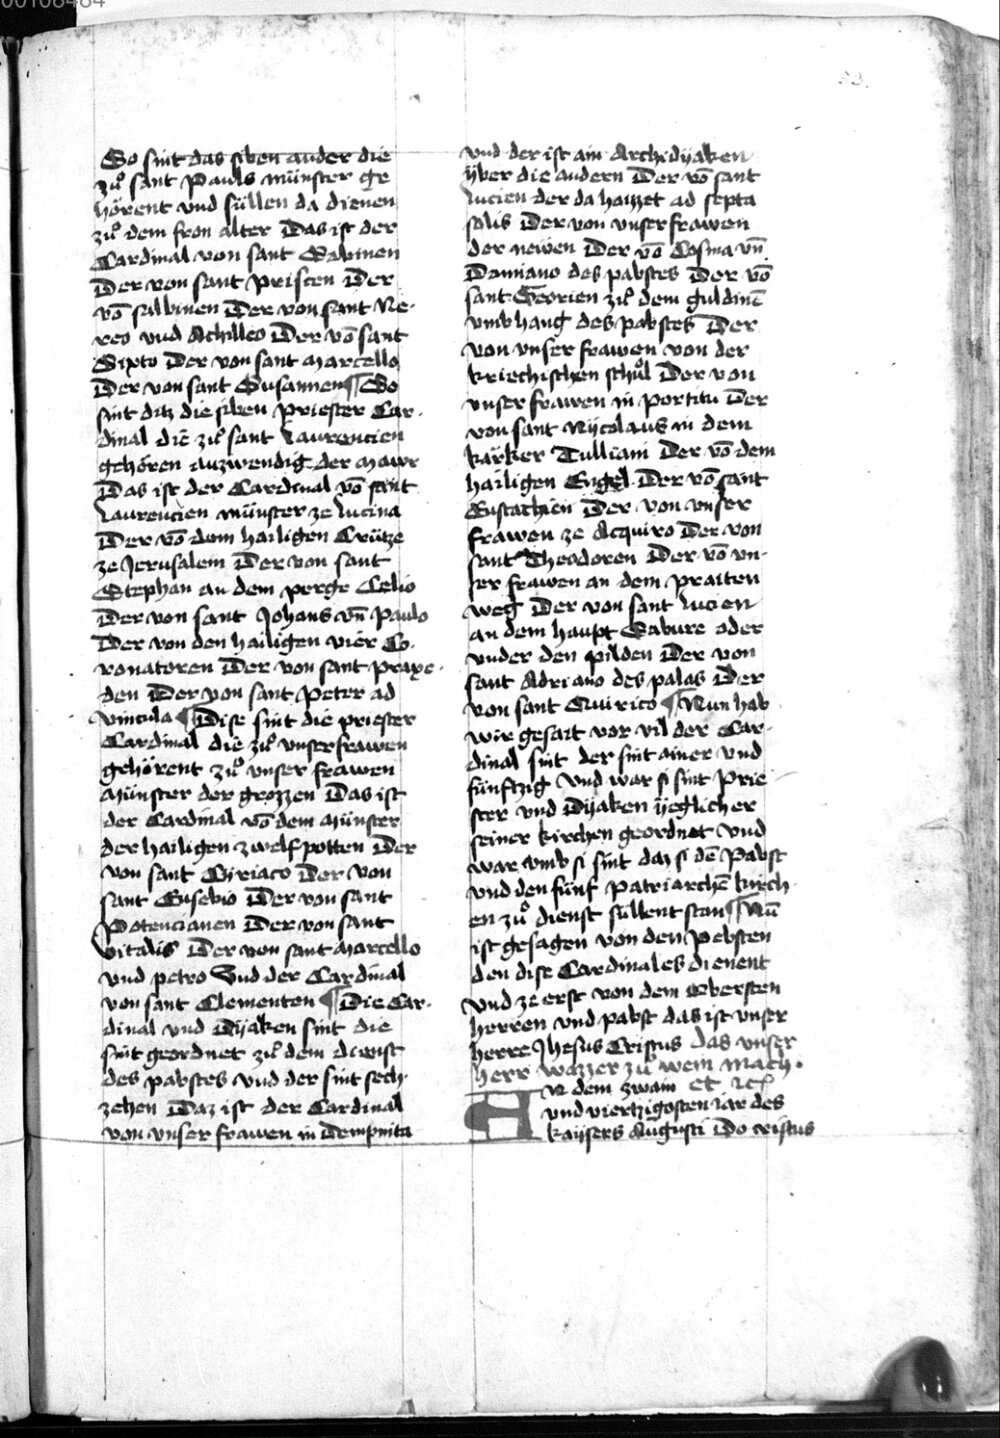 00108484
53.
So sint das siben ander die
zuͦ sant Pauls münster ge
hörent vnd süllen da dienen
zuͦ dem fron alter Das ist der
Cardinal von sant Sabinen
Der von sant Priscen Der
vō salbinen Der von sant Ne-
reo vnd Achilleo Der vō sant
Sixto Der von sant Marcello
Der von sant Susannen ¶ So
sint ditz die siben priester Car-
dinal die zuͦ sant Laurencien
gehören auzwendig der Mawr
Das ist der Cardinal vō sant
Laurencien münster ze Lucina
Der vō dem hailigen Crütze
ze Jerusalem Der von sant
Stephan an dem perge Celio
Der von sant Johans vn̄ Paulo
Der von den hailigen vier Co-
ronatoren Der von sant Praxe-
den Der von sant Peter ad
vincula ¶ Dise sint die priester
Cardinal die zuͦ vnser frawen
gehörent zuͦ vnser frawen
Münster der grozzen Das ist
der Cardinal vō dem Münster
der hailigen zwelfpotten Der
von sant Ciriaco Der von
sant Eusebio Der von sant
Potencianen Der von sant
vitalis Der von sant Marcello
vnd petro Vnd der Cardinal
von sant Clementen ¶ Die Car-
dinal vnd Dyaken sint die
sint geordnet zuͦ dem dienst
des pabstes vnd der sint sech-
zehen Daz ist der Cardinal
von vnser frawen in Dempnita
vnd der ist ain Archidyaken
yber die andern Der vō sant
Lucien der da haizzet ad septa
solis Der von vnser frawen
der newen Der vō Cosma vn̄
Damiano des pabstes Der vō
sant Georien zuͦ dem guldinē
vmbhang des pabstes Der
von vnser frawen von der
kriechischen schuͦl Der von
vnser frawen in portitu Der
von sant Nycolaus in dem
karker Tulliani Der vō dem
hailigen Engel Der vō sant
Eustachien Der von vnser
frawen ze Acquiro Der von
sant Theodoren Der vō vn-
ser frawen an dem praiten
weg Der von sant Lucien
an dem haupt Sabure oder
vnder den pilden Der von
sant Adriano des palas Der
von sant Quirico ¶ Nun hab
wir gesait vor vil der Car-
dinal sint der sint ainer vnd
fünftzig Vnd war si sint prie
ster vnd Dyaken yeglicher
seiner kirchen geordnet Vnd
war vmb si sint daz si dē Pabst
vnd den fünf Patriarchē kirch-
en zuͦ dienst süllent stan ¶ Nū
ist gesagen von den Pebsten
den dise Cardinales dienent
Vnd ze erst von dem Obersten
herren vnd pabst das ist vnser
herre Jhesus Cristus das vnser
herr wazzer zuͦ wein mach.
A n dem zwain et rc̄
vnd viertzigosten iar des
kaysers Augusti Do cristus